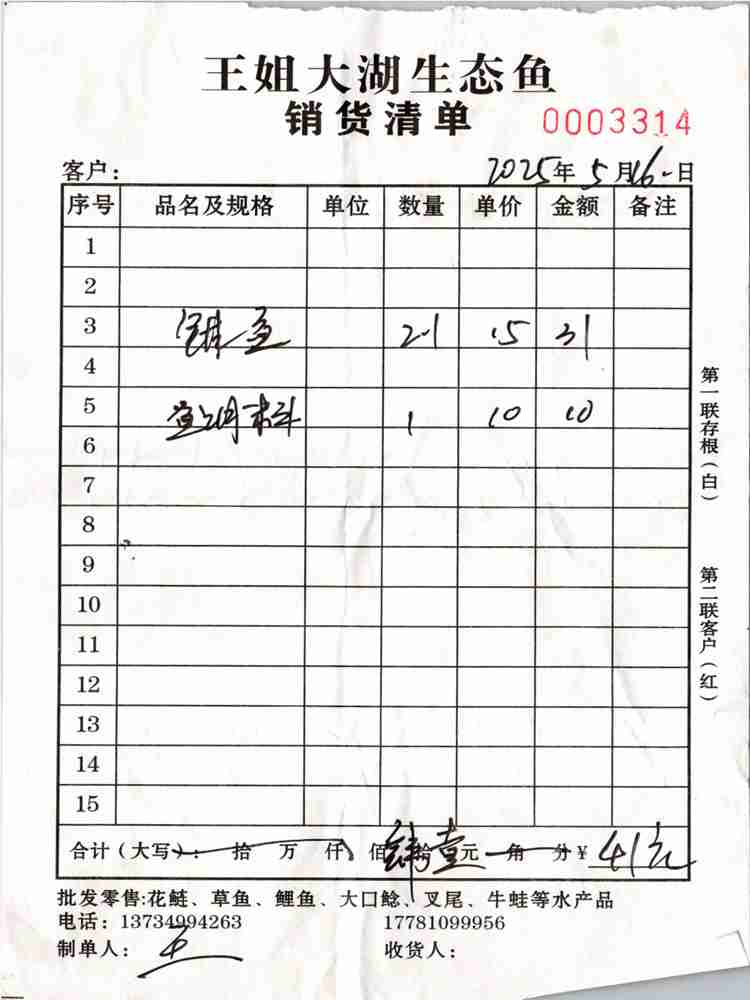 王姐大湖生态鱼
销货清单 0003314
客户: 2025年5月16日
序号 品名及规格 单位 数量 单价 金额 备注
1
2
3 21 15 31
4
5 1 10 10
6
7
8
9
10
11
12
13
14
15
合计(大写): 拾 万 仟 佰 肆拾壹元 角 分 ¥ 41元
批发零售:花鲢、草鱼、鲤鱼、大口鲶、叉尾、牛蛙等水产品
电话: 13734994263 17781099956
制单人: 王 收货人:
第一联存根(白)
第二联客户(红)